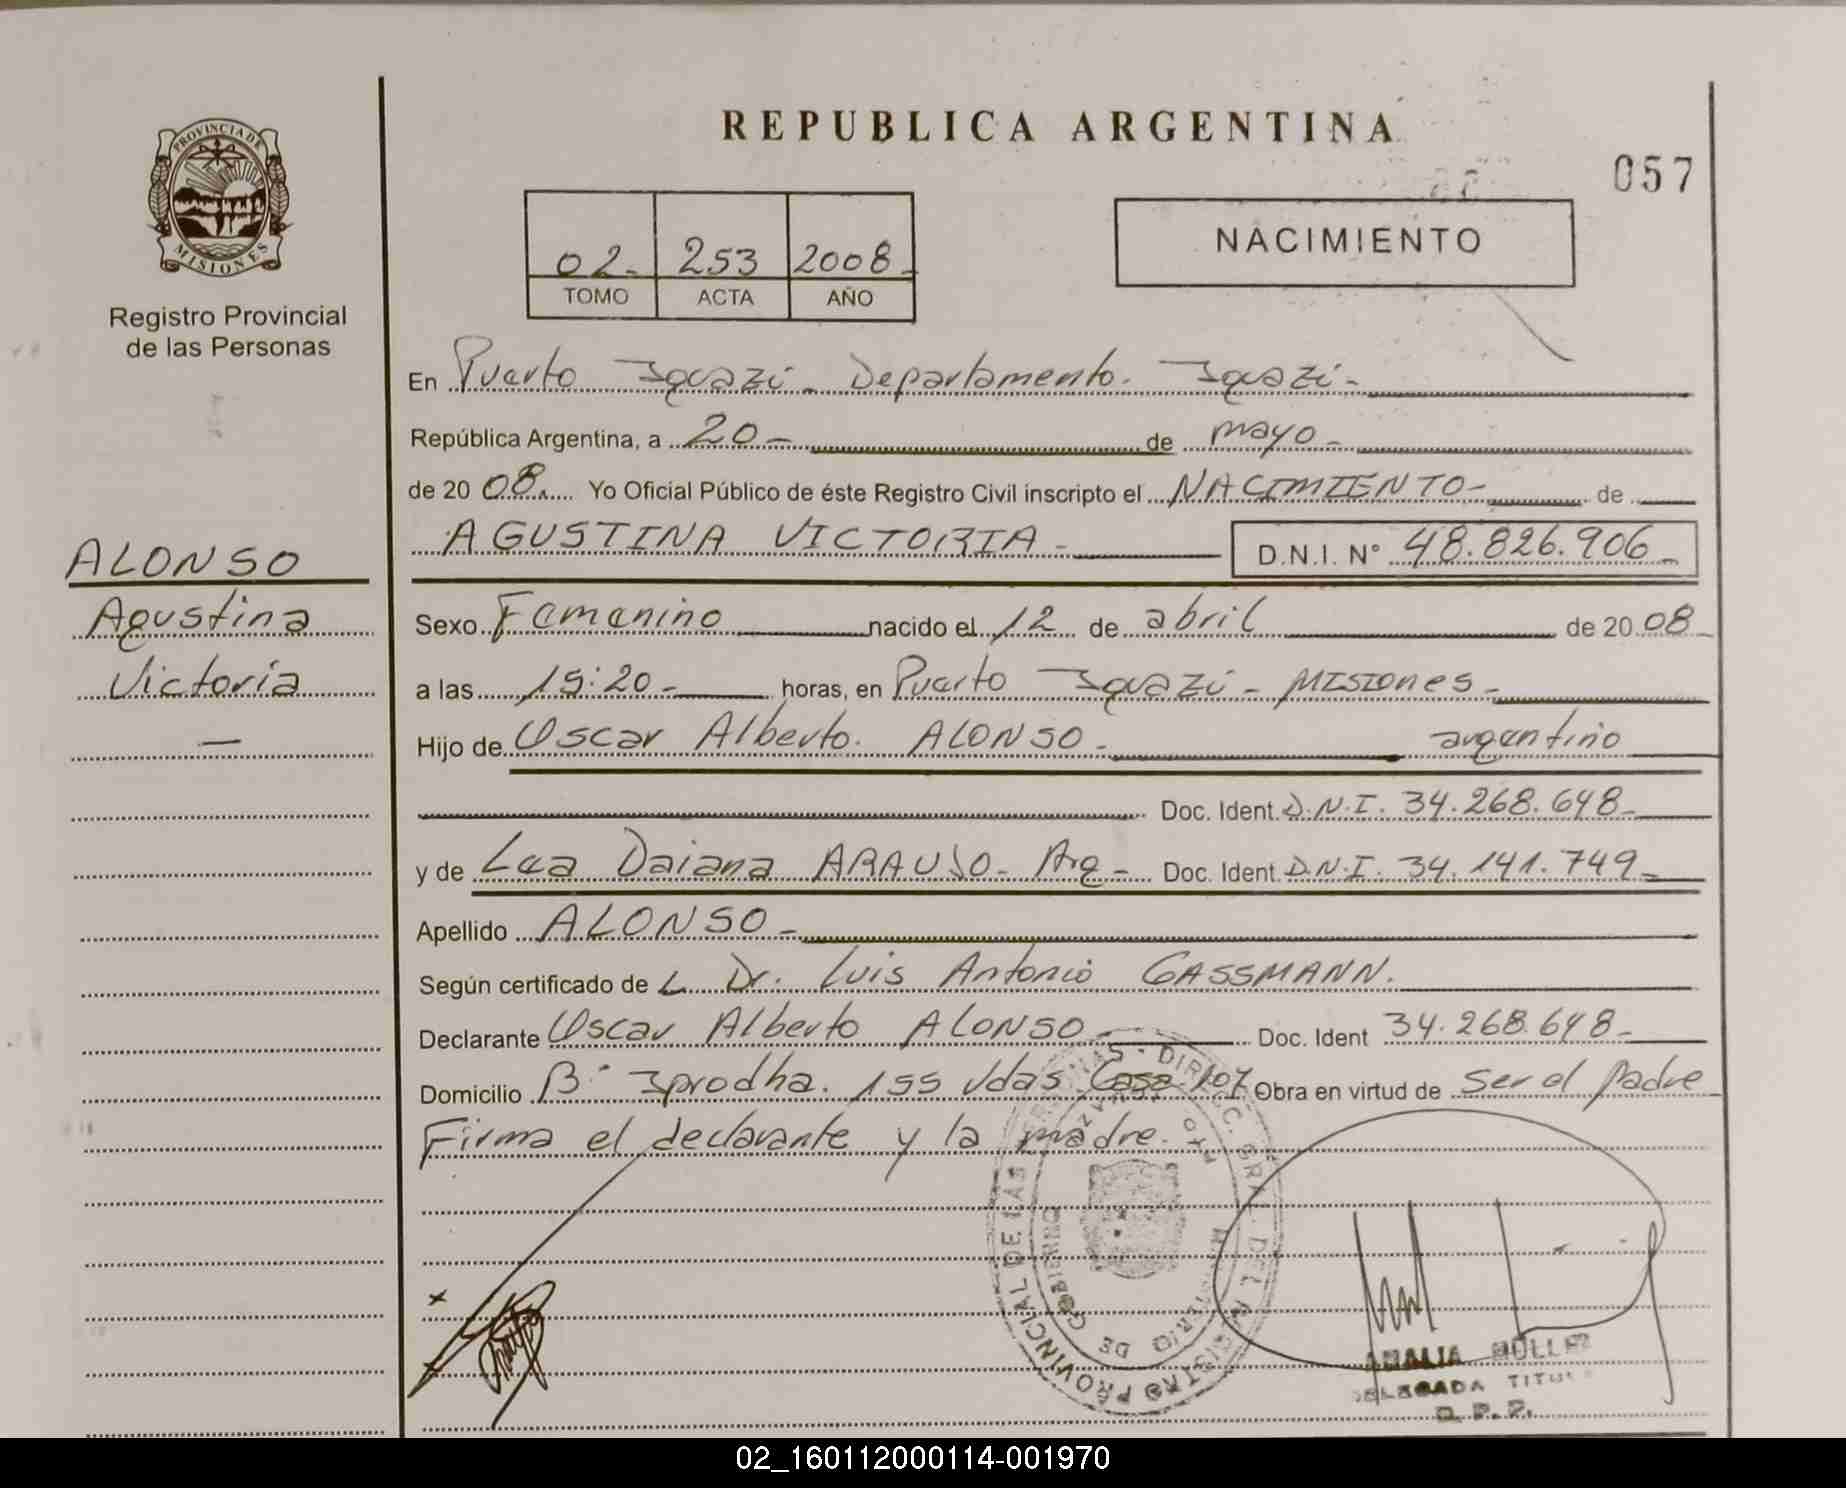 REPUBLICA ARGENTINA
057
PROVINCIA DE
MISIONES
Registro Provincial
de las Personas
02- 253 2008-
TOMO ACTA AÑO
NACIMIENTO
En Puerto Iguazú - Departamento. Iguazú -
República Argentina, a 20 - de mayo -
de 20 08. Yo Oficial Público de éste Registro Civil inscripto el NACIMIENTO - de
AGUSTINA VICTORIA - D.N.I. N° 48.826.906 -
ALONSO
Agustina
Victoria
—
Sexo Femenino nacido el 12 de abril de 20 08 -
a las 15:20 - horas, en Puerto Iguazú - MISIONES -
Hijo de Oscar Alberto. ALONSO - argentino
Doc. Ident. D.N.I. 34.268.648 -
y de Lea Daiana ARAUJO - Arg - Doc. Ident D.N.I. 34.141.749 -
Apellido ALONSO -
Según certificado de L Dr. Luis Antonio GASSMANN.
Declarante Oscar Alberto ALONSO - Doc. Ident 34.268.648 -
Domicilio B° Iprodha. 155 Vdas Casa 107 Obra en virtud de ser el padre
Firma el declarante y la madre.
REGISTRO PROVINCIAL DE LAS
MINISTERIO DE GOBIERNO
AMALIA
DELEGADA